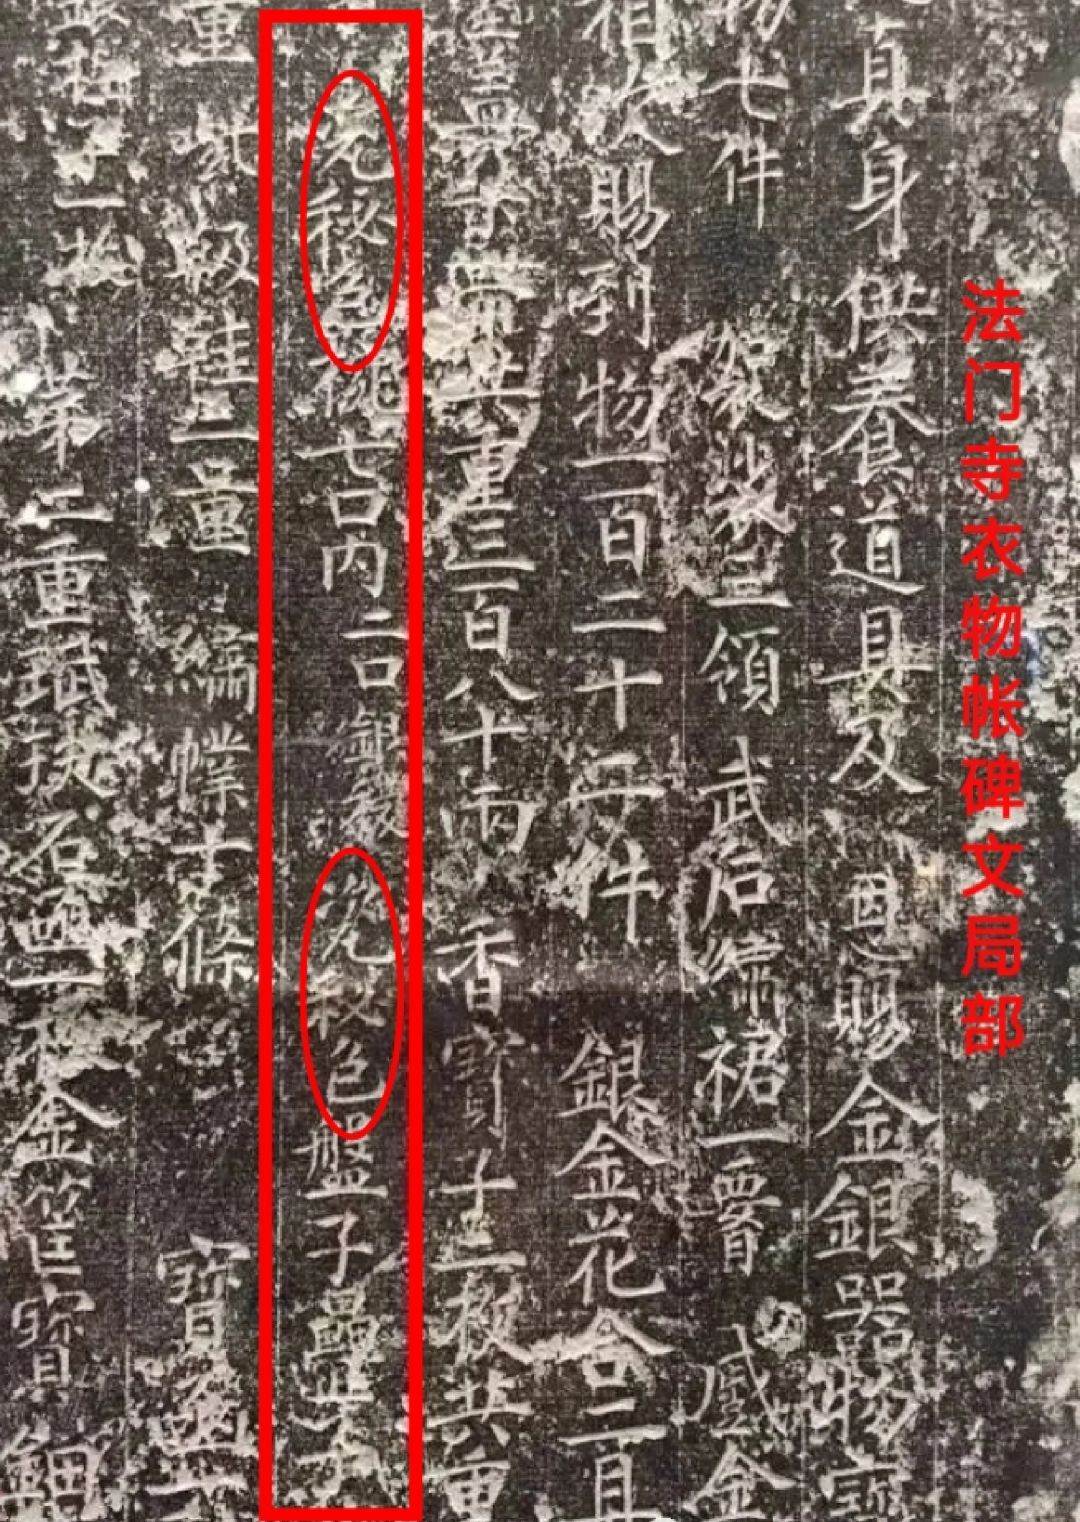 法门寺衣物帐碑文局部
真身供養道具及恩賜金銀器物寶
物七件 袈裟三領 武后繡裙一腰 蹙金
相次賜到物一百二十二件 銀金花合二具
共重三百八十兩 香寶子二枚共重
瓷秘色椀七口內二口銀稜 瓷秘色盤子疊子
重 鞋二量 十條 寶函一
子一枚 第二重珷玞石函一枚金筐寶鈿